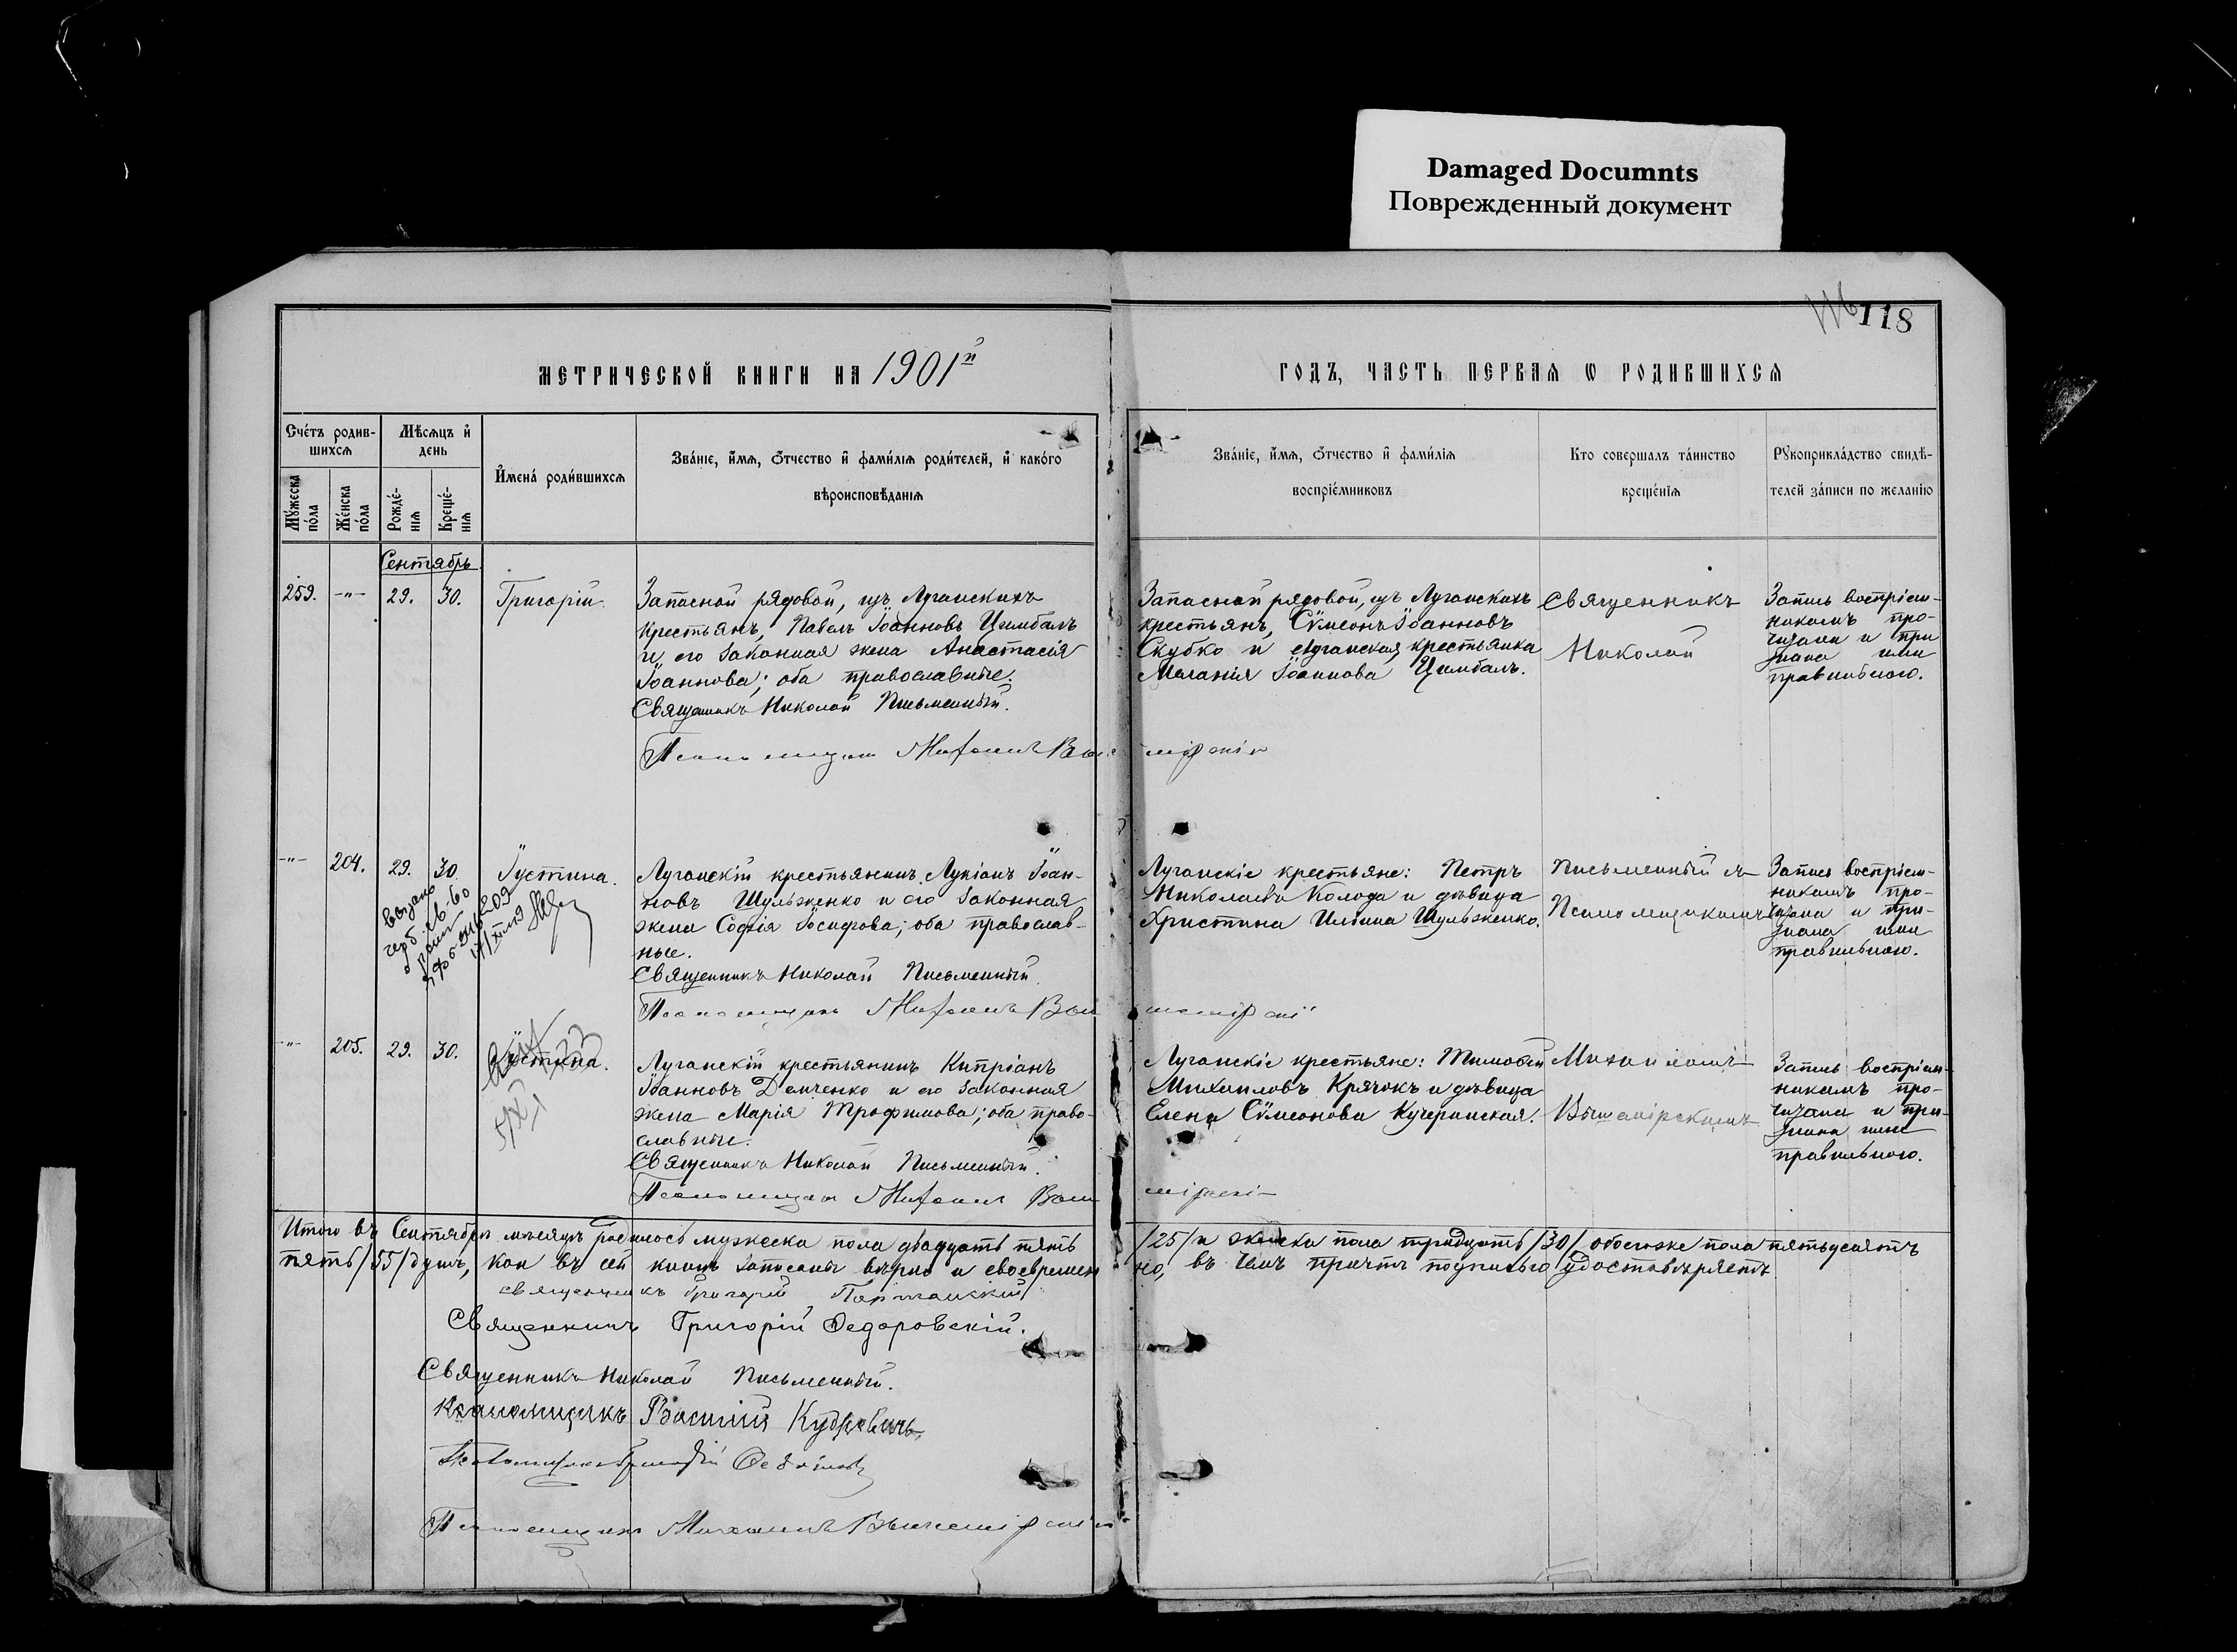 Damaged Documnts
Поврежденный документ
118
МЕТРИЧЕСКОЙ КНИГИ НА 1901й
ГОДЪ, ЧАСТЬ ПЕРВАЯ Ѡ РОДИВШИХСЯ
Счетъ родив-
шихся
Мѣсяцъ и
день
Мужеска
пола
Женска
пола
Рожде-
нія
Креще-
нія
Имена родившихся
Званіе, имя, отчество и фамилія родителей, и какого
вѣроисповѣданія
Званіе, имя, отчество и фамилія
воспріемниковъ
Кто совершалъ таинство
крещенія
Рукоприкладство свидѣ-
телей записи по желанію
Сентябрь
259. -"- 29. 30. Григорій.
Запасной рядовой, изъ Луганскихъ
крестьянъ, Павелъ Іоанновъ Цимбалъ
и его законная жена Анастасія
Іоаннова; оба православные.
Священникъ Николай Письменный.
Псаломщикъ Михаилъ
Запасной рядовой, изъ Луганскихъ
крестьянъ, Сѵмеонъ Іоанновъ
Скубко и Луганская крестьянка
Меланія Іоаннова Цимбалъ.
Священникъ
Николай
Запись воспріем-
никамъ про-
читана и при
знана ими
правильною.
-"- 204. 29. 30. Іустина.
выдано
Луганскій крестьянинъ Лукіанъ Іоан-
новъ Шульженко и его законная
жена Софія Іосифова; оба православ-
ные.
Священникъ Николай Письменный.
Псаломщикъ Михаилъ
Луганскіе крестьяне: Петръ
Николаевъ Колода и дѣвица
Христина Ильина Шульженко.
Письменный съ
Псаломщикомъ
Запись воспріем-
никамъ про-
читана и при-
знана ими
правильною.
-"- 205. 29. 30. Іустина.
Луганскій крестьянинъ Кипріанъ
Іоанновъ Демченко и его законная
жена Марія Трофимова; оба право-
славные.
Священникъ Николай Письменный.
Псаломщикъ Михаилъ
Луганскіе крестьяне: Тимофей
Михаиловъ Крячокъ и дѣвица
Елена Сѵмеонова Кучеринская.
Михаиломъ
Вышемірскимъ
Запись воспріем-
никамъ про-
читана и при-
знана ими
правильною.
Итого въ Сентябрѣ мѣсяцѣ родилось мужеска пола двадцать пять /25/ и женска пола тридцать /30/ обоегоже пола пятьдесятъ
пять /55/ душъ, кои въ сей книгѣ записаны вѣрно и своевременно, въ чемъ причтъ подписью удостовѣряетъ
священникъ Григорій
Священникъ Григорій Федоровскій.
Священникъ Николай Письменный.
Псаломщикъ Василій
Псаломщикъ
Псаломщикъ Михаилъ Вышемірскій